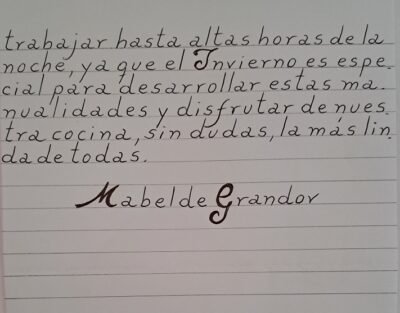 trabajar hasta altas horas de la
noche, ya que el Invierno es espe
cial para desarrollar estas ma.
nualidades y disfrutar de nues
tra cocina, sin dudas, la más lin.
da de todas.
Mabel de Grandov